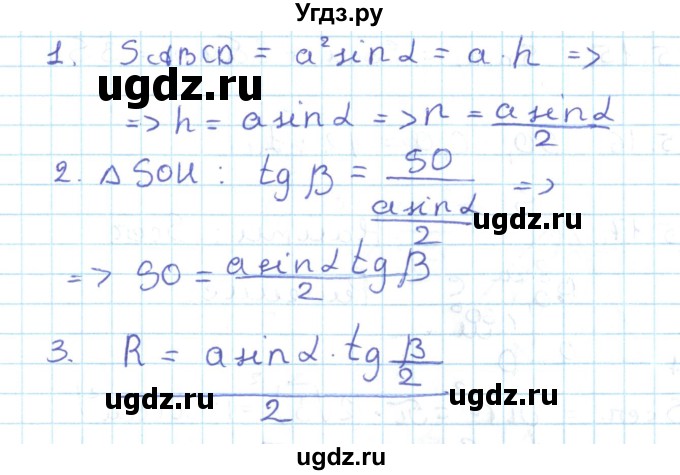 Угдз.ру
1. SABCD = a² sin α = a · h =>
ugdz.ru
=> h = a sin α => r = a sin α / 2
2. Δ SOH : tg β = SO / (a sin α / 2) =>
ugdz.ru
=> SO = a sin α tg β / 2
3. R = a sin α · tg β/2 / 2
ugdz.ru
ugdz.ru
ugdz.ru